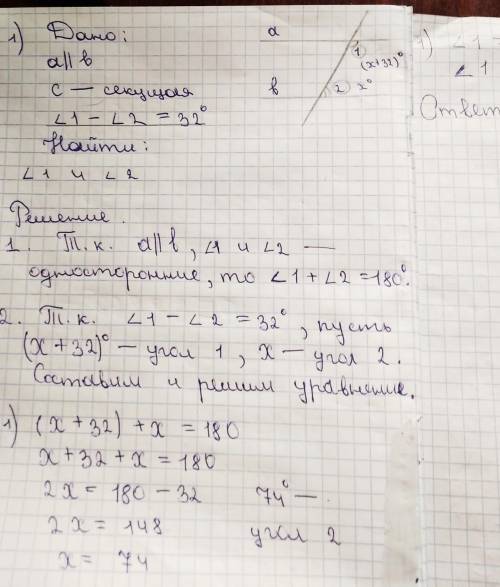 1) Дано:
a || b
c — секущая
∠1 - ∠2 = 32°
Найти:
∠1 и ∠2
a
1
(x+32)°
в
2 x°
Решение.
1. Т.к. a || b, ∠1 и ∠2 —
односторонние, то ∠1 + ∠2 = 180°.
2. Т.к. ∠1 - ∠2 = 32°, пусть
(x + 32)° — угол 1, x — угол 2.
Составим и решим уравнение.
1) (x + 32) + x = 180
x + 32 + x = 180
2x = 180 - 32
2x = 148
x = 74
74° —
угол 2
1) ∠1 -
∠1
Ответ